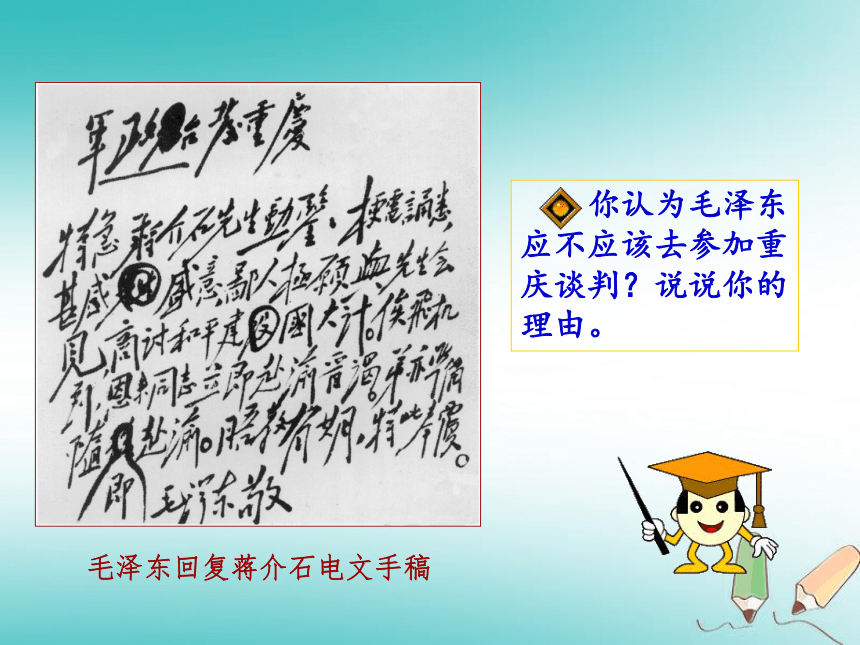 重慶
特急 蔣介石先生勳鑒:梗電誦悉,
甚感盛意。鄙人極願與先生会
見,商讨和平建國大计。俟飛机
到,恩来同志立即赴渝晋謁。弟亦準備
随即赴渝。晤教有期,特此奉覆。
毛泽东敬
你认为毛泽东
应不应该去参加重
庆谈判?说说你的
理由。
毛泽东回复蒋介石电文手稿